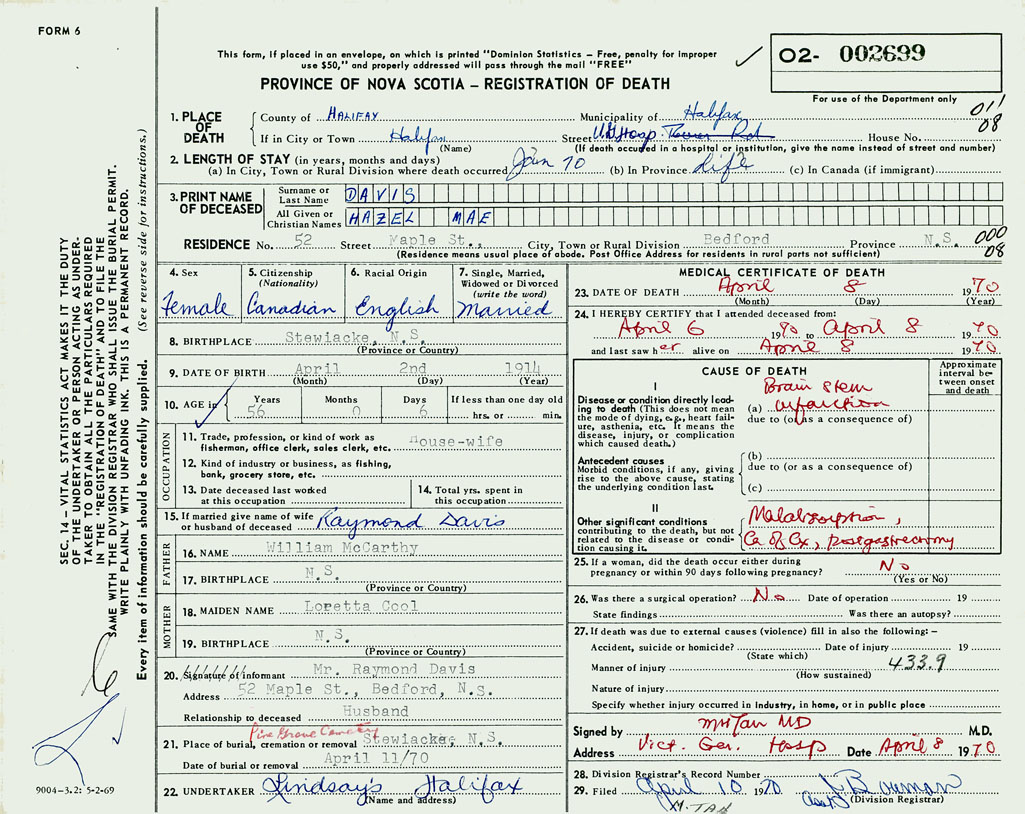 FORM 6
This form, if placed in an envelope, on which is printed "Dominion Statistics – Free, penalty for improper
use $50," and properly addressed will pass through the mail "FREE"
PROVINCE OF NOVA SCOTIA – REGISTRATION OF DEATH
O2- 002699
For use of the Department only
011
08
1. PLACE OF DEATH
County of HALIFAX Municipality of Halifax
If in City or Town Halifax Street V.G. Hosp Tower Rd House No.
(Name) (If death occured in a hospital or institution, give the name instead of street and number)
2. LENGTH OF STAY (in years, months and days)
(a) In City, Town or Rural Division where death occurred Jan 70 (b) In Province Life (c) In Canada (if immigrant)
3. PRINT NAME OF DECEASED
Surname or Last Name DAVIS
All Given or Christian Names HAZEL MAE
RESIDENCE No. 52 Street Maple St., City, Town or Rural Division Bedford Province N.S.
000
08
(Residence means usual place of abode. Post Office Address for residents in rural parts not sufficient)
4. Sex
Female
5. Citizenship
(Nationality)
Canadian
6. Racial Origin
English
7. Single, Married,
Widowed or Divorced
(write the word)
Married
8. BIRTHPLACE Stewiacke, N.S.
(Province or Country)
9. DATE OF BIRTH April 2nd 1914
(Month) (Day) (Year)
10. AGE in Years Months Days If less than one day old
56 0 6 hrs. or min.
OCCUPATION
11. Trade, profession, or kind of work as
fisherman, office clerk, sales clerk, etc. House-wife
12. Kind of industry or business, as fishing,
bank, grocery store, etc.
13. Date deceased last worked
at this occupation
14. Total yrs. spent in
this occupation
15. If married give name of wife
or husband of deceased Raymond Davis
FATHER
16. NAME William McCarthy
17. BIRTHPLACE N.S.
(Province or Country)
MOTHER
18. MAIDEN NAME Loretta Cool
19. BIRTHPLACE N.S.
(Province or Country)
20. Signature of informant Mr. Raymond Davis
Address 52 Maple St., Bedford, N.S.
Relationship to deceased Husband
Pine Grove Cemetery
21. Place of burial, cremation or removal Stewiacke, N.S.
Date of burial or removal April 11/70
22. UNDERTAKER Lindsay's Halifax
(Name and address)
MEDICAL CERTIFICATE OF DEATH
23. DATE OF DEATH April 8 1970
(Month) (Day) (Year)
24. I HEREBY CERTIFY that I attended deceased from:
April 6 1970 to April 8 1970
and last saw her alive on April 8 1970
CAUSE OF DEATH
Approximate
interval be-
tween onset
and death
I
Disease or condition directly lead-
ing to death (This does not mean
the mode of dying, e.g., heart fail-
ure, asthenia, etc. It means the
disease, injury, or complication
which caused death.)
Brain Stem
(a) infarction
due to (or as a consequence of)
Antecedent causes
Morbid conditions, if any, giving
rise to the above cause, stating
the underlying condition last.
(b)
due to (or as a consequence of)
(c)
II
Other significant conditions
contributing to the death, but not
related to the disease or condi-
tion causing it.
Malabsorption,
Ca of Cx, postgastrectomy
25. If a woman, did the death occur either during
pregnancy or within 90 days following pregnancy? No
(Yes or No)
26. Was there a surgical operation? No Date of operation 19
State findings Was there an autopsy?
27. If death was due to external causes (violence) fill in also the following: –
Accident, suicide or homicide? Date of injury 19
(State which)
Manner of injury 433.9
(How sustained)
Nature of injury
Specify whether injury occurred in Industry, in home, or in public place
Signed by MH Tan MD M.D.
Address Vict. Gen. Hosp Date April 8 1970
28. Division Registrar's Record Number
29. Filed April 10 1970 Bowman
(Division Registrar)
M. TAN
SEC. 14 – VITAL STATISTICS ACT MAKES IT THE DUTY
OF THE UNDERTAKER OR PERSON ACTING AS UNDER-
TAKER TO OBTAIN ALL THE PARTICULARS REQUIRED
IN THE "REGISTRATION OF DEATH" AND TO FILE THE
SAME WITH THE DIVISION REGISTRAR WHO SHALL ISSUE THE BURIAL PERMIT.
WRITE PLAINLY WITH UNFADING INK. THIS IS A PERMANENT RECORD.
Every item of information should be carefully supplied. (See reverse side for instructions.)
9004-3.2: 5-2-69